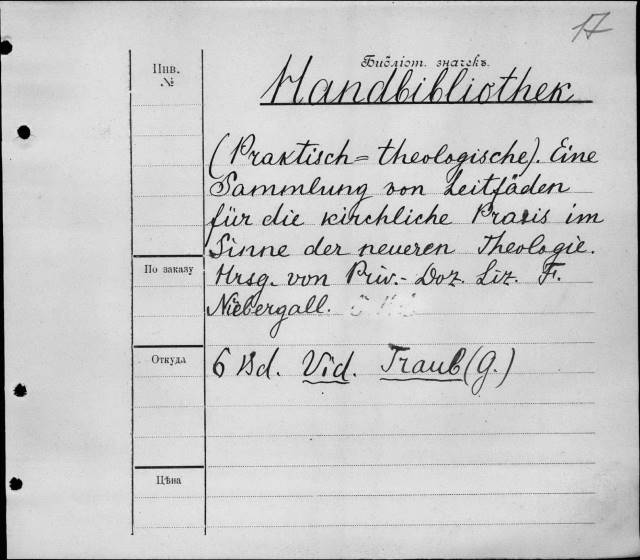 17
Библіот. значекъ.
Инв.
№
Handbibliothek
(Praktisch=theologische). Eine
Sammlung von Leitfäden
für die kirchliche Praxis im
Sinne der neueren Theologie.
По заказу
Hrsg. von Priv.-Doz. Liz. F.
Niebergall.
Откуда
6 Bd. Vid. Traub (G.)
Цѣна